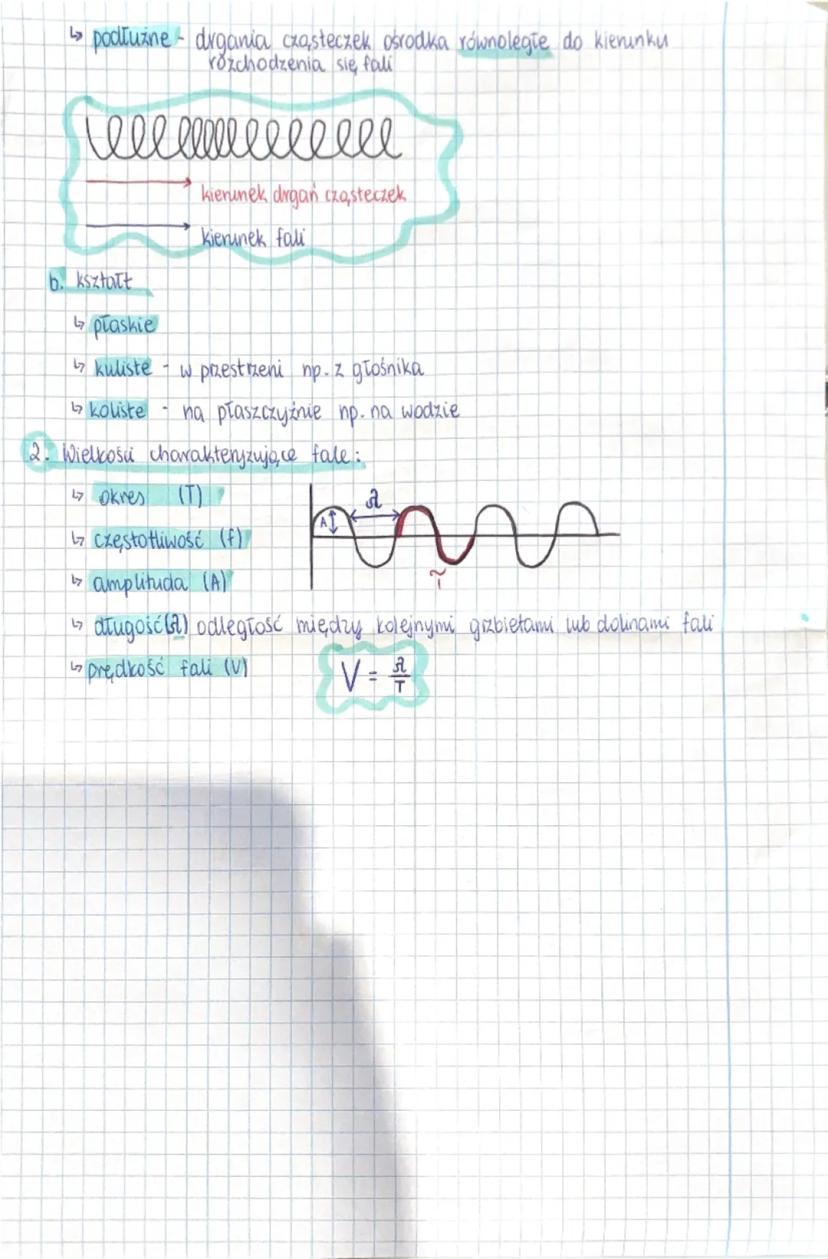 ↳ podłużne - drgania cząsteczek ośrodka równoległe do kierunku
rozchodzenia się fali
kierunek drgań cząsteczek
kierunek fali
b. kształt
↳ płaskie
↳ kuliste - w przestrzeni np. z głośnika
↳ koliste - na płaszczyźnie np. na wodzie
2. Wielkości charakteryzujące fale:
↳ okres (T)
↳ częstotliwość (f)
↳ amplituda (A)
A λ
T
↳ długość (λ) odległość między kolejnymi grzbietami lub dolinami fali
↳ prędkość fali (V)
V = λ/T